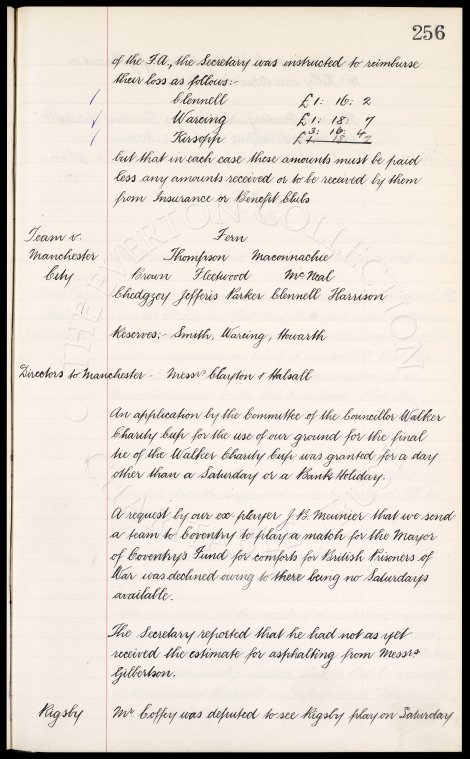 256
of the F.A., the Secretary was instructed to reimburse
their loss as follows:-
Clennell £1: 16: 2
Wareing £1: 18: 7
Kirsopp £3: 16: 4
but that in each case these amounts must be paid
less any amounts received or to be received by them
from Insurance or Benefit Clubs
Team v. Fern
Manchester Thompson Maconnachie
City Brown Fleetwood McNeal
Chedgzoy Jefferis Parker Clennell Harrison
Reserves:- Smith, Wareing, Howarth
Directors to Manchester - Messrs Clayton & Halsall
An application by the Committee of the Councillor Walker
Charity Cup for the use of our ground for the final
tie of the Walker Charity Cup was granted for a day
other than a Saturday or a Bank Holiday.
A request by our ex-player J.B. Meunier that we send
a team to Coventry to play a match for the Mayor
of Coventry's Fund for comforts for British Prisoners of
War was declined owing to there being no Saturdays
available.
The Secretary reported that he had not as yet
received the estimate for asphalting from Messrs
Gilbertson.
Rigsby Mr Coffey was deputed to see Rigsby play on Saturday
THE EVERTON COLLECTION